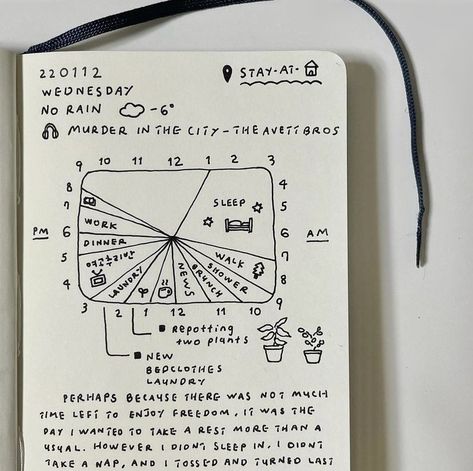 220112
STAY-AT-
WEDNESDAY
NO RAIN -6°
MURDER IN THE CITY - THE AVETT BROS
9 10 11 12 1 2 3
8 4
7 SLEEP 5
PM 6 WORK 6 AM
DINNER
5 여고추리반 WALK 7
4 LAUNDRY NEWS BRUNCH SHOWER 8
3 2 1 12 11 10 9
Repotting
two plants
NEW
BEDCLOTHES
LAUNDRY
PERHAPS BECAUSE THERE WAS NOT MUCH
TIME LEFT TO ENJOY FREEDOM, IT WAS THE
DAY I WANTED TO TAKE A REST MORE THAN A
USUAL. HOWEVER I DIDNT SLEEP IN, I DIDNT
TAKE A NAP, AND I TOSSED AND TURNED LAST